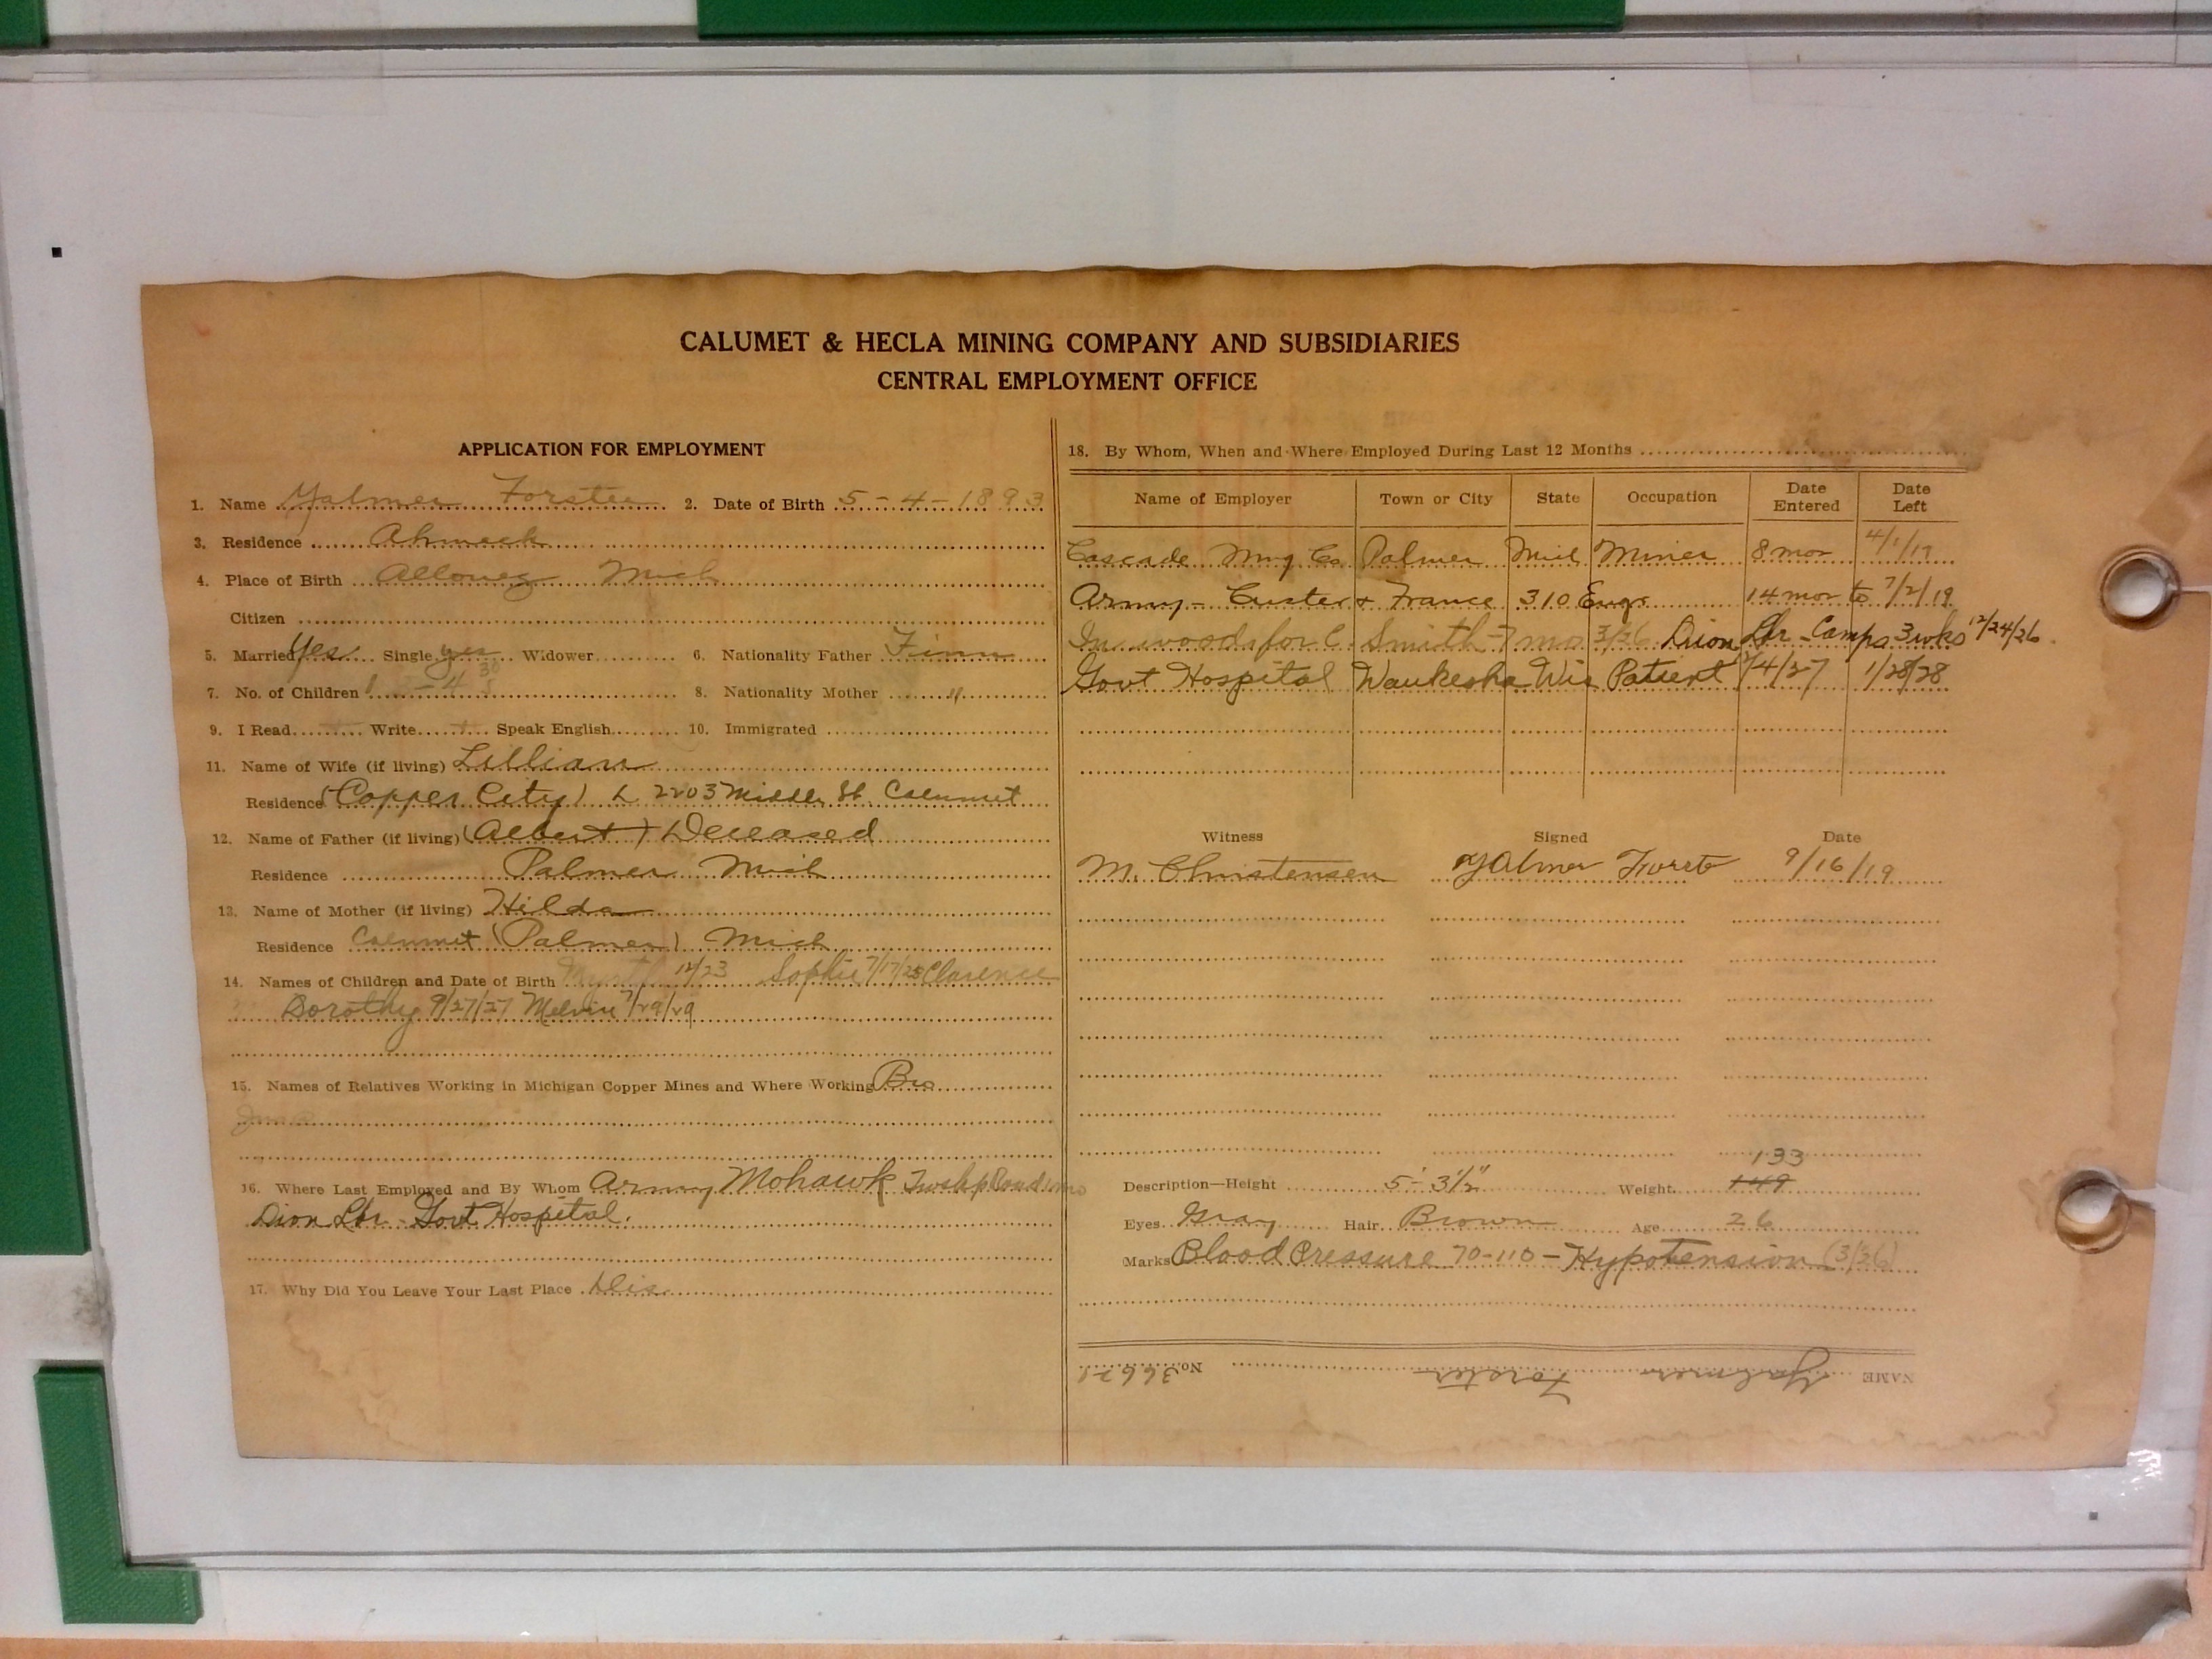 CALUMET & HECLA MINING COMPANY AND SUBSIDIARIES
CENTRAL EMPLOYMENT OFFICE
APPLICATION FOR EMPLOYMENT
1. Name Yalmer Forster 2. Date of Birth 5-4-1893
3. Residence Ahmeek
4. Place of Birth Allouez Mich
Citizen
5. Married Yes Single yes Widower 6. Nationality Father Finn
7. No. of Children 8. Nationality Mother "
9. I Read Write Speak English 10. Immigrated
11. Name of Wife (if living) Lillian
Residence (Copper City) 2203 Middle St. Calumet
12. Name of Father (if living) (Albert) Deceased
Residence Palmer Mich
13. Name of Mother (if living) Hilda
Residence Calumet (Palmer) Mich
14. Names of Children and Date of Birth 12/23 Sophie 7/17/25 Clarence
Dorothy 9/27/27 Melvin 7/29/29
15. Names of Relatives Working in Michigan Copper Mines and Where Working Bro
16. Where Last Employed and By Whom Army Mohawk Twshp Road
Dion Lbr - Govt Hospital.
17. Why Did You Leave Your Last Place Dis
18. By Whom, When and Where Employed During Last 12 Months
Name of Employer Town or City State Occupation Date Entered Date Left
Cascade Mng Co Palmer Mich Miner 8 mos 4/1/17
Army - Custer & France 310 Engs 14 mos to 7/2/19
In woods for C. Smith - 7 mos 3/26 Dion Lbr - Camps 3 wks 12/24/26
Govt Hospital Waukesha Wis Patient 12/4/27 1/28/28
Witness Signed Date
M. Christensen Yalmer Forst 9/16/19
133
Description—Height 5'-3½" Weight 149
Eyes Gray Hair Brown Age 26
Marks Blood Pressure 70-110 - Hypotension (3/26)
NAME Yalmer Forster No. 36621